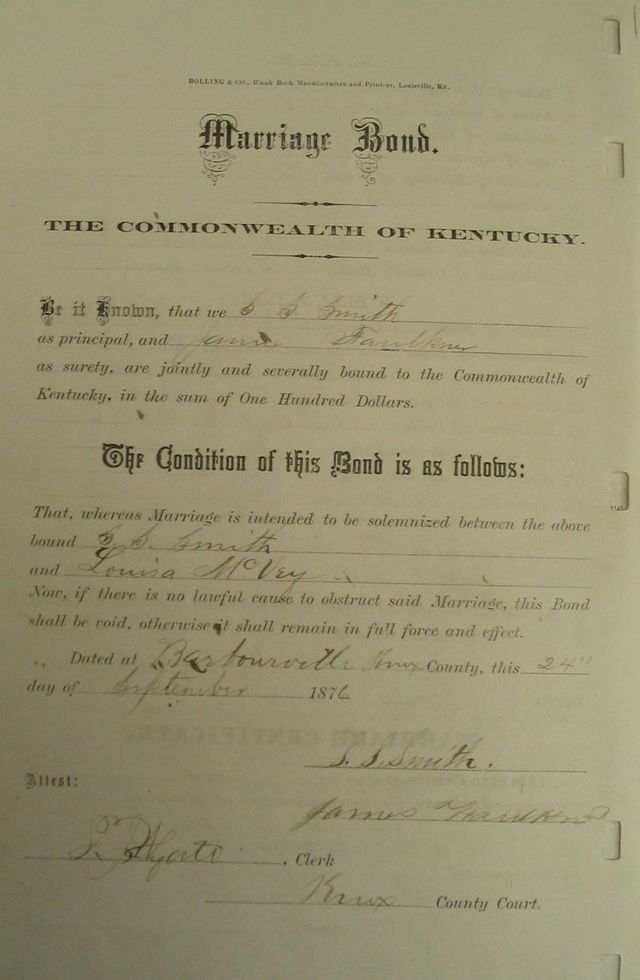 BOLLING & CO., Blank Book Manufacturers and Printers, Louisville, Ky.
Marriage Bond.
THE COMMONWEALTH OF KENTUCKY.
Be it Known, that we S. S. Smith
as principal, and James Faulkner
as surety, are jointly and severally bound to the Commonwealth of
Kentucky, in the sum of One Hundred Dollars.
The Condition of this Bond is as follows:
That, whereas Marriage is intended to be solemnized between the above
bound S. S. Smith
and Louisa McVey
Now, if there is no lawful cause to obstruct said Marriage, this Bond
shall be void, otherwise it shall remain in full force and effect.
Dated at Barbourville Knox County, this 24"
day of September 1876
S. S. Smith.
Attest:
James Faulkner
, Clerk
Knox County Court.